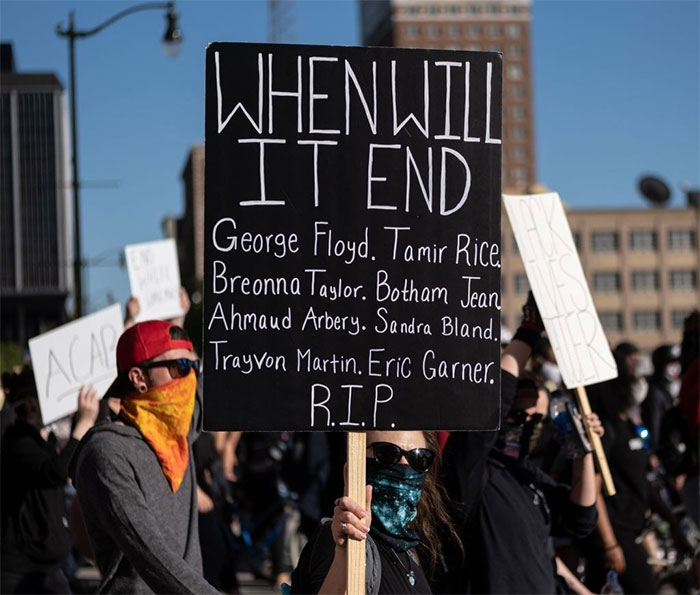 WHEN WILL
IT END
George Floyd. Tamir Rice.
Breonna Taylor. Botham Jean.
Ahmaud Arbery. Sandra Bland.
Trayvon Martin. Eric Garner.
R.I.P.
END
WHITE
ACAB
LIVES